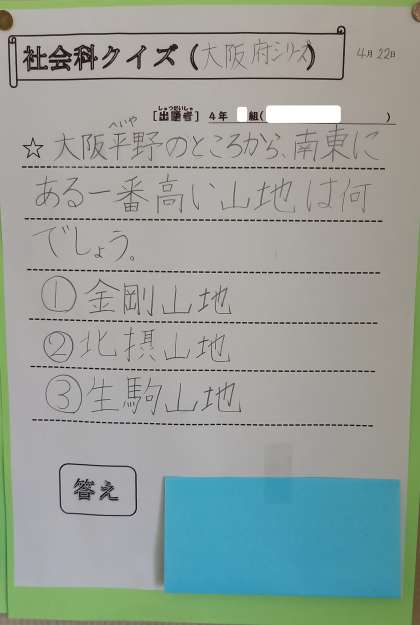 社会科クイズ(大阪府シリーズ)
4月22日
しゅつだいしゃ
[出題者] 4年 組( )
へいや
☆大阪平野のところから、南東に
ある一番高い山地は何
でしょう。
①金剛山地
②北摂山地
③生駒山地
答え